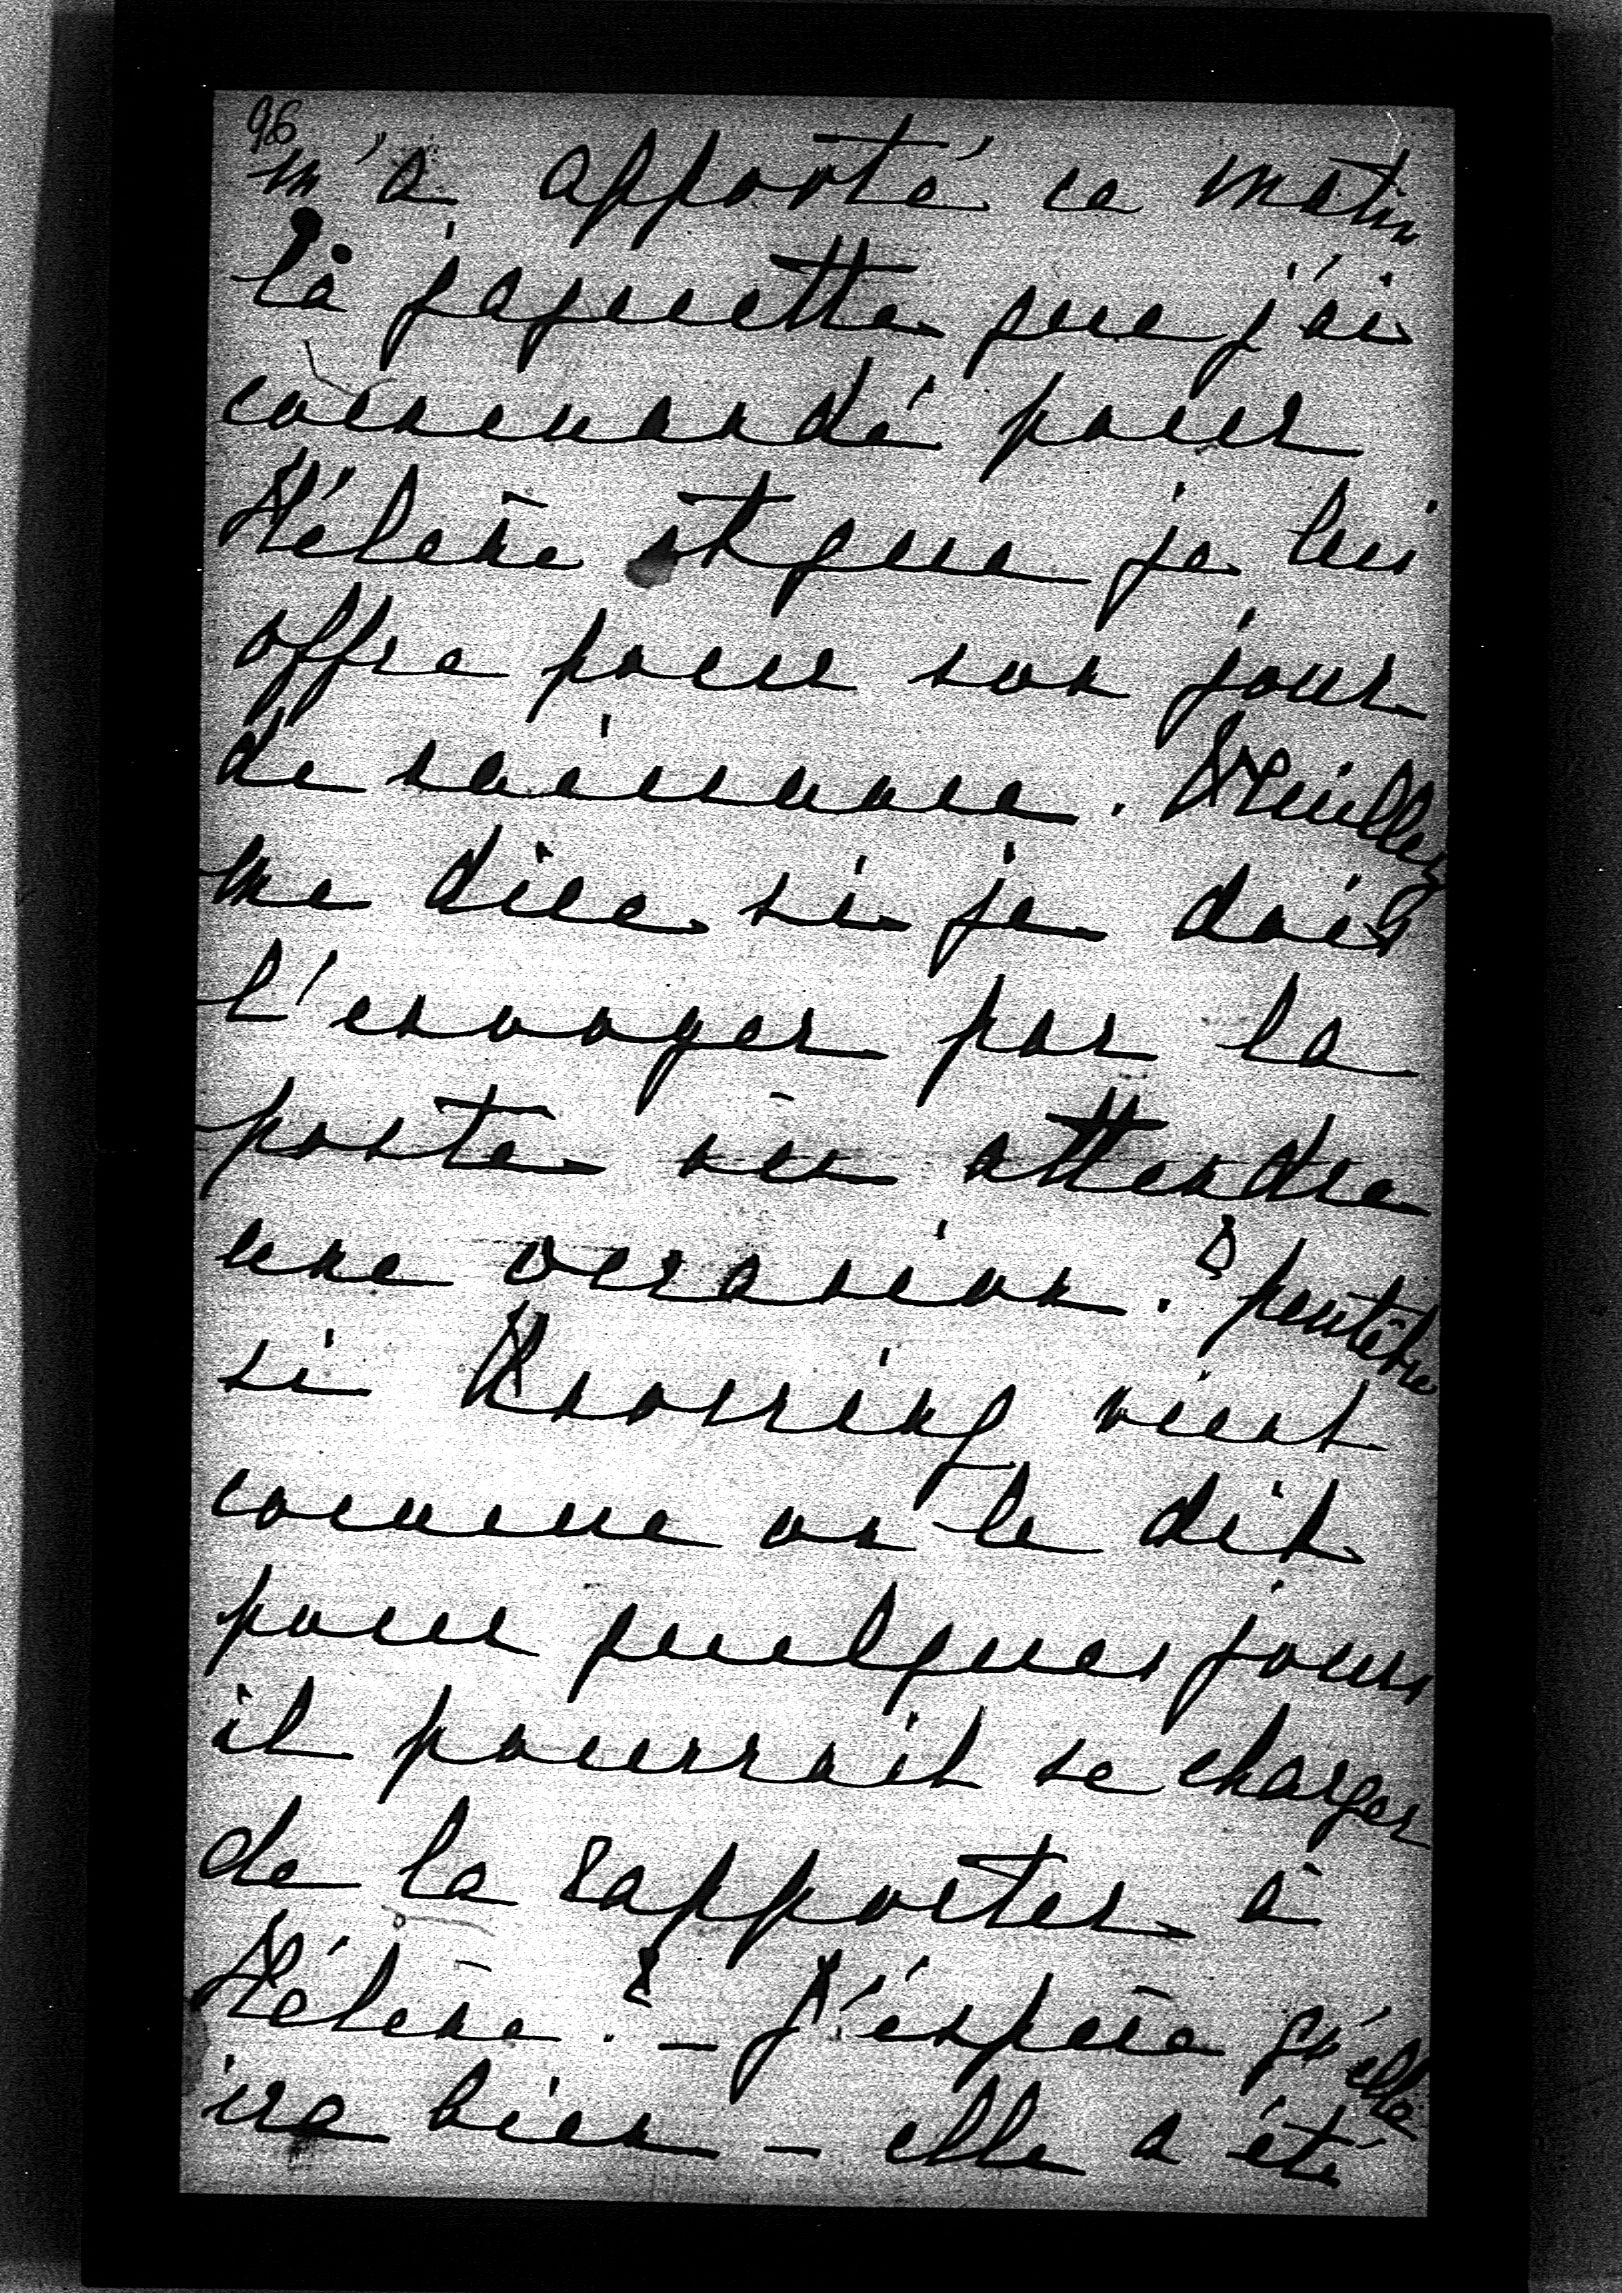 96
m'a apporté ce matin
la jaquette que j'ai
commandé pour
Hélène et que je lui
offre pour son jour
de naissance. Veuillez
me dire si je dois
l'envoyer par la
poste ou attendre
une occasion. ? peutêtre
si Knorring vient
comme on le dit
pour quelques jours
il pourrait se charger
de la rapporter à
Hélène. ? – J'espère qu'elle
ira bien – elle a été